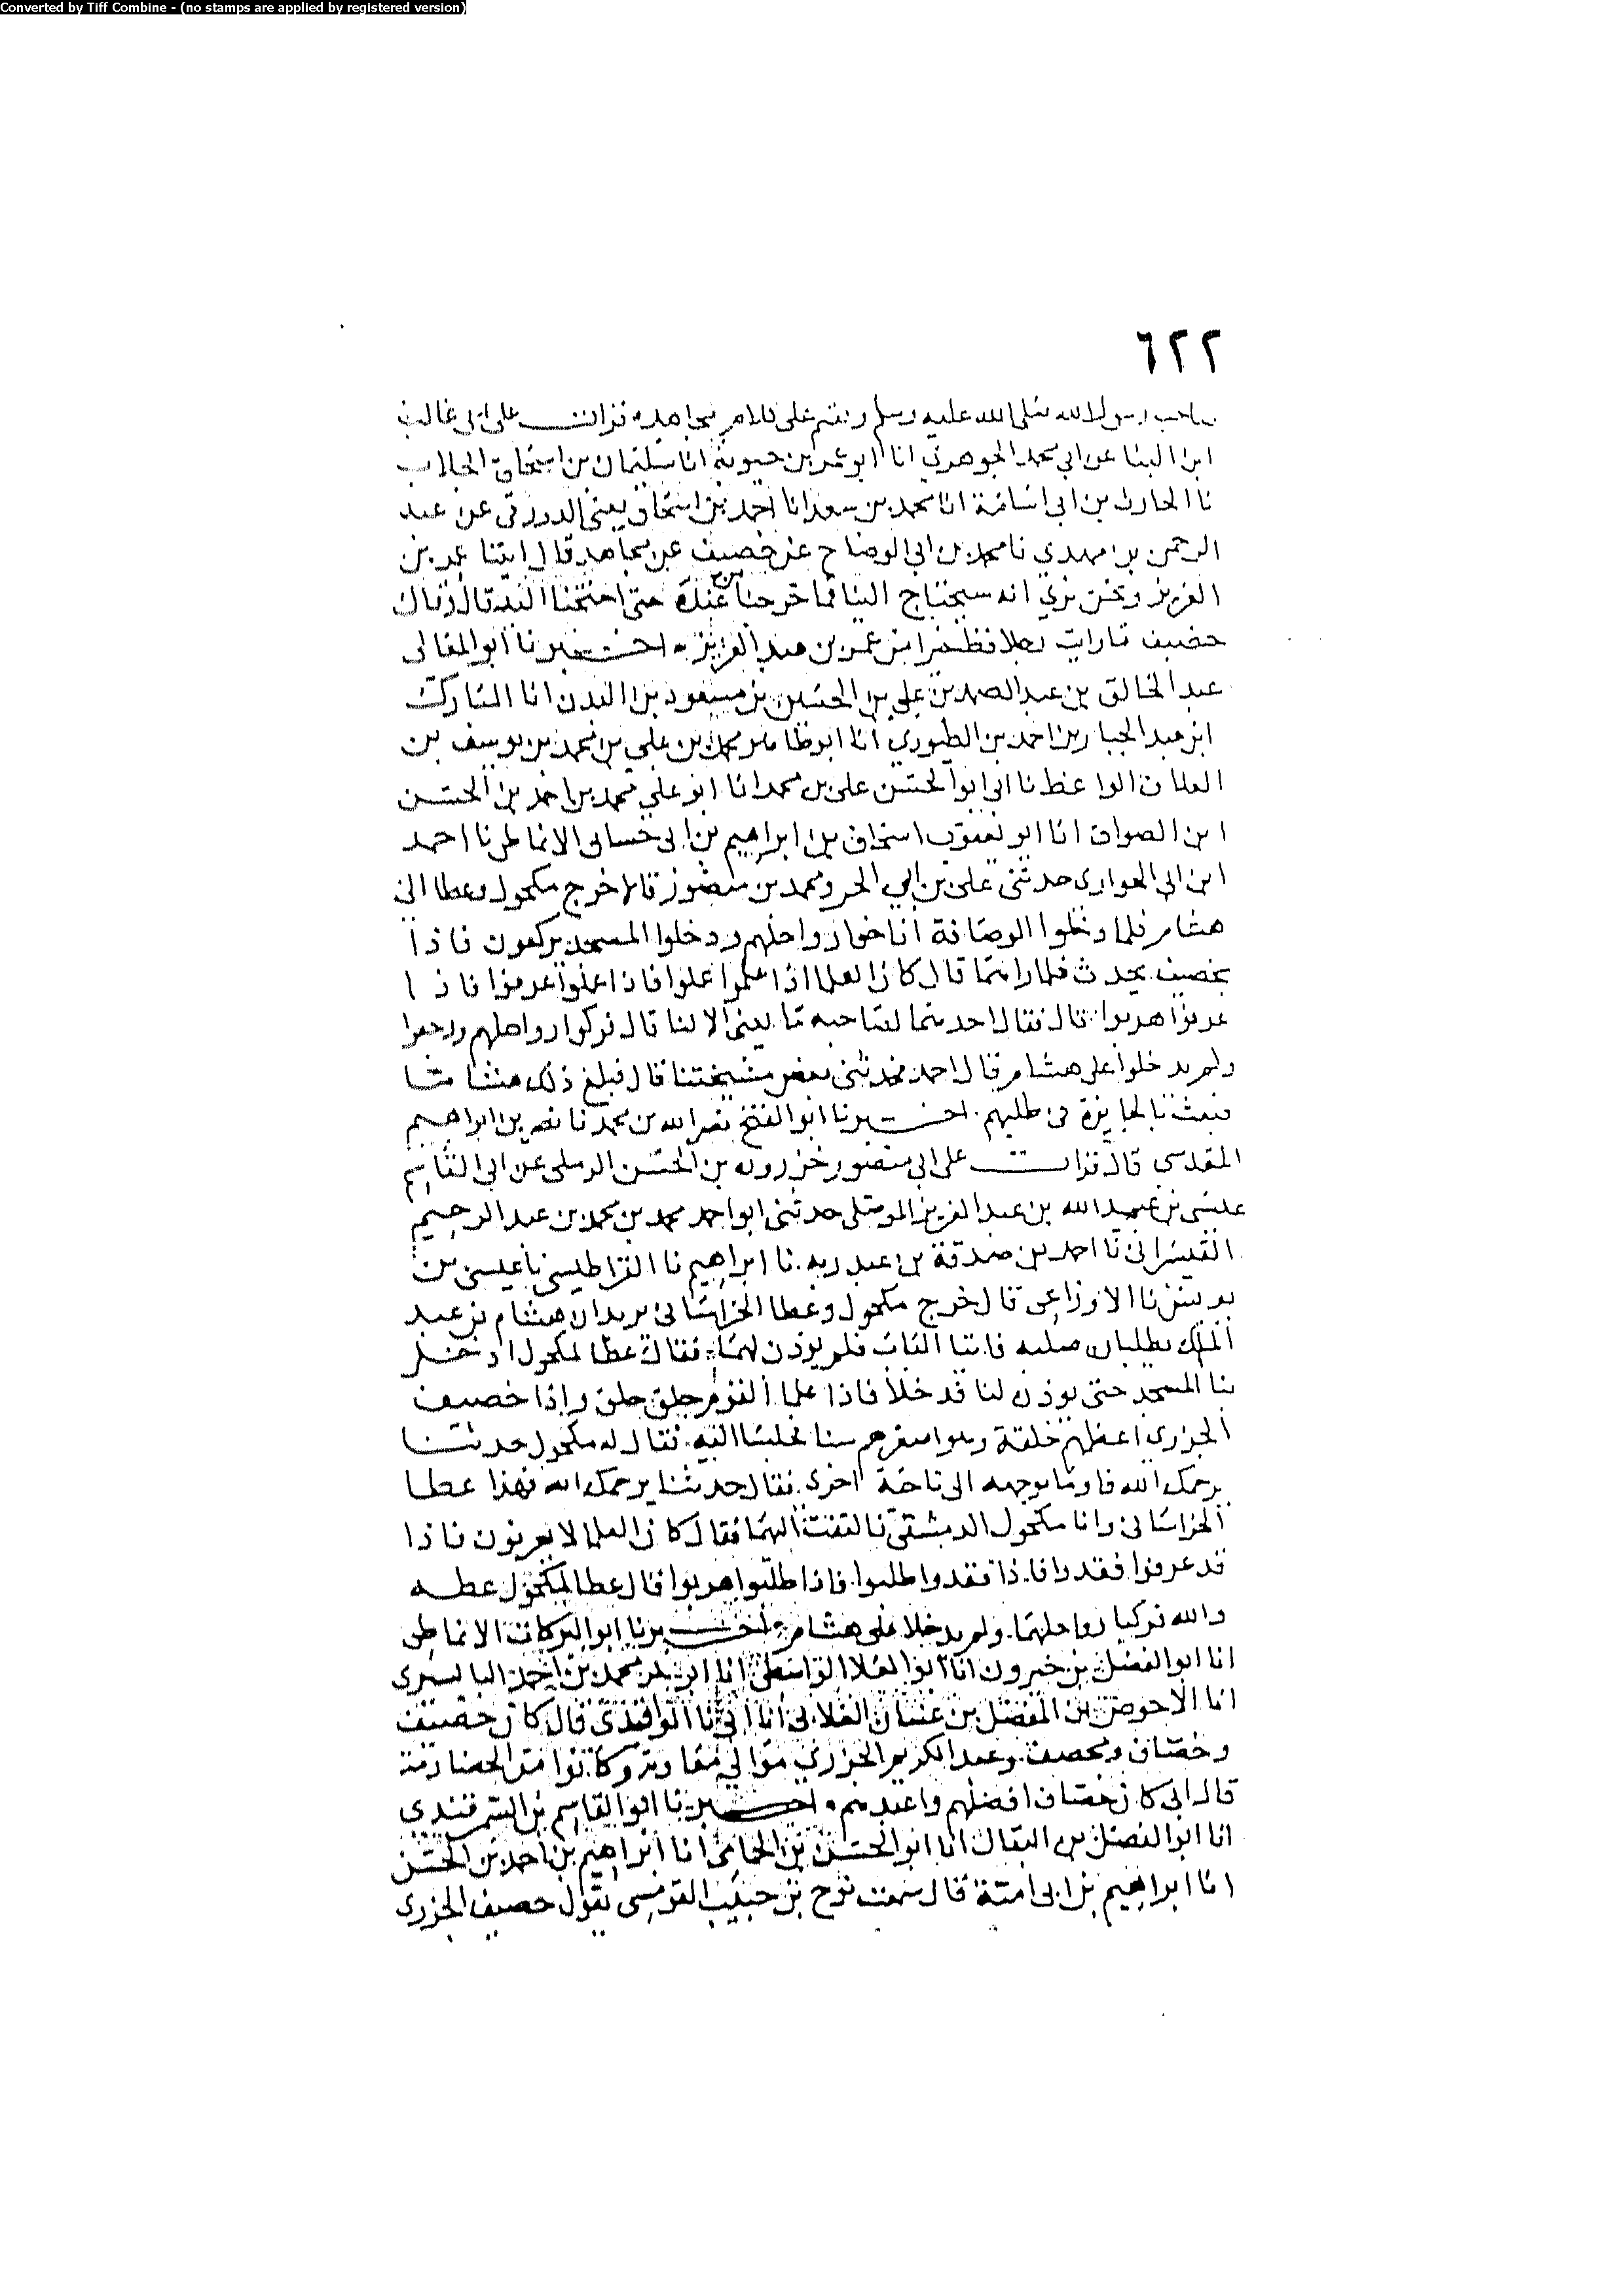 Converted by Tiff Combine - (no stamps are applied by registered version)
٦٢٢
صاحب رسول الله صلى الله عليه وسلم على مجاهد قرات على ابى غالب
ابن البنا عن ابي محمد الجوهري انا ابو عمر بن حيوية انا سليمان بن اسحاق الجلاب
نا الحارث بن ابى اسامة انا محمد بن سعد انا احمد بن اسحاق يعنى الدورقى عن عبد
الرحمن بن مهدي نا محمد بن ابي الوضاح عن خصيف عن مجاهد قال اتينا عمر بن
العزيز ونحن نرى انه سيحتاج الينا فما خرجنا من عنده حتى احتجنا اليه قال وقال
خصيف ما رايت رجلا قط خيرا من عمر بن عبد العزيز اخبرنا ابو المعالى
عبد الخالق بن عبد الصمد بن علي بن الحسين بن مسعود بن البدن انا المبارك
ابن عبد الجبار بن احمد بن الطيوري انا ابو طاهر محمد بن علي بن محمد بن يوسف بن
العلاف الواعظ نا ابى ابو الحسن على بن محمد انا ابو علي محمد بن احمد بن الحسن
ابن الصواف انا ابو يعقوب اسحاق بن ابراهيم بن ابى حسان الانماطى نا احمد
ابن ابى الحوارى حدثنى على بن ابي الحر ومحمد بن منصور قالا خرج مكحول وعطا الى
هشام فلما دخلوا الرصافة اناخوا رواحلهم ودخلوا المسجد يركعون فاذا
بخصيف يحدث فلما راهما قال كان العلما اذا علموا عملوا فاذا عملوا عرفوا فاذا
عرفوا هربوا قال فقال احدهما لصاحبه ما يعنى الا لنا قال فركبوا رواحلهم ورجعوا
ولم يدخلوا على هشام قال احمد فحدثنى بعض مشيختنا قال فبلغ ذلك هشاما
فبعث بالجايزة فى طلبهم اخبرنا ابو الفتح نصر الله بن محمد نا نصر بن ابراهيم
المقدسى قال قرات على ابى منصور خزرون بن الحسن الرملى عن ابي القاسم
عيسى بن عبيد الله بن عبد العزيز الموصلى حدثنى ابو احمد محمد بن محمد بن عبد الرحيم
القيسرانى نا احمد بن صدقة بن عبد ربه نا ابراهيم نا القراطيسى نا عيسى بن
يونس نا الاوزاعى قال خرج مكحول وعطا الخراسانى يريدان هشام بن عبد
الملك يطلبان صلته فاتيا الباب فلم يوذن لهما فقال عطا لمكحول ادخل
بنا المسجد حتى يوذن لنا فدخلا فاذا علما القوم حلق حلق واذا خصيف
الجزرى اعظمهم حلقة وهو اصغرهم سنا فجلسا اليه فقال له مكحول حدثنا
يرحمك الله فاومأ بوجهه الى ناحية اخرى فقال حدثنا يرحمك الله فهذا عطا
الخراسانى وانا مكحول الدمشقى فالتفت اليهما فقال كان العلما لا يعرفون فاذا
قد عرفوا فقدوا فاذا فقدوا طلبوا فاذا طلبوا هربوا قال عطا لمكحول عطه
والله فركبا رواحلهما ولم يدخلا على هشام اخبرنا ابو البركات الانماطى
انا ابو الفضل بن خيرون انا ابو العلا الواسطى انا ابو بكر محمد بن احمد البابسيرى
انا الاحوص بن المفضل بن غسان الغلابى انا ابي نا الواقدى قال كان خصيف
وخصاف ومخصف وعبد الكريم الجزري موالى معاوية وكانوا من الخضارمة
قال ابى كان خصاف افضلهم واعبدهم اخبرنا ابو القاسم بن السمرقندى
انا ابو الفضل بن البقال انا ابو الحسن بن الحمامى انا ابراهيم بن احمد بن الحسن
انا ابراهيم بن ابى امية قال سمعت نوح بن حبيب القومسى يقول خصيف الجزرى